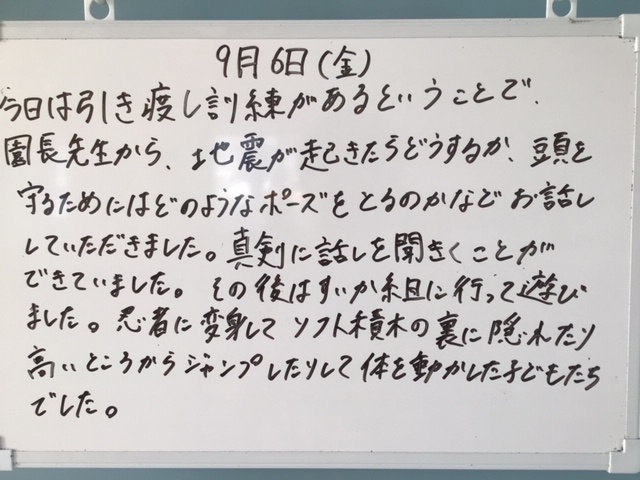 9月6日(金)
今日は引き渡し訓練があるということで、
園長先生から、地震が起きたらどうするか、頭を
守るためにはどのようなポーズをとるのかなどお話し
していただきました。真剣に話しを聞きくことが
できていました。その後はすいか組に行って遊び
ました。忍者に変身してソフト積木の裏に隠れたり
高いところからジャンプしたりして体を動かした子どもたち
でした。